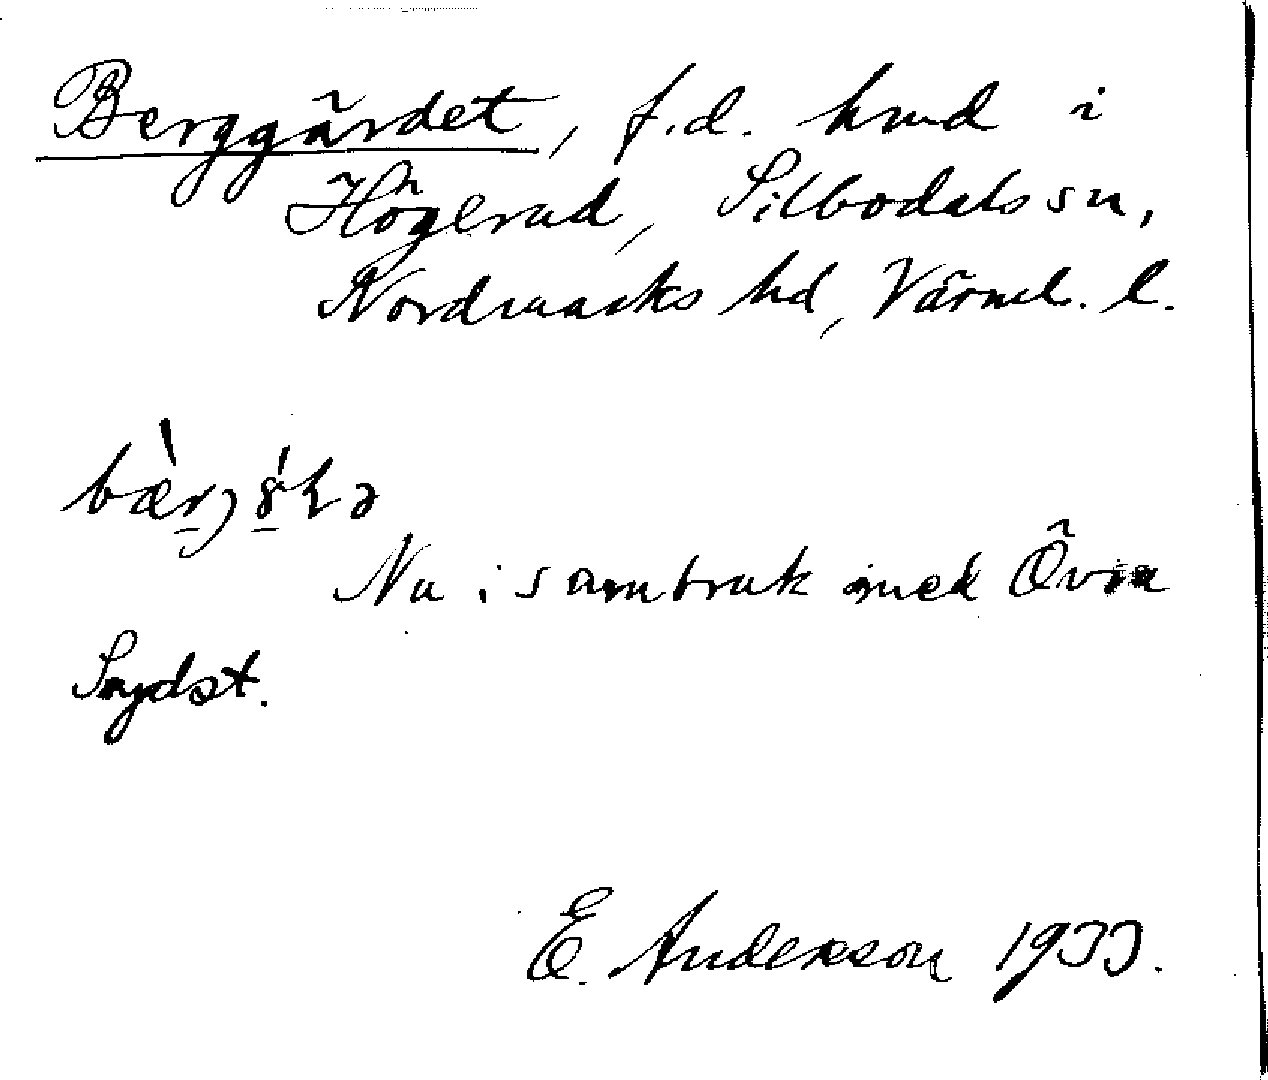 Berggärdet, f.d. hmd i
Högerud, Silbodals sn,
Nordmarks hd, Värml. l.
Nu i sambruk med Övre
E. Anderson 1933.